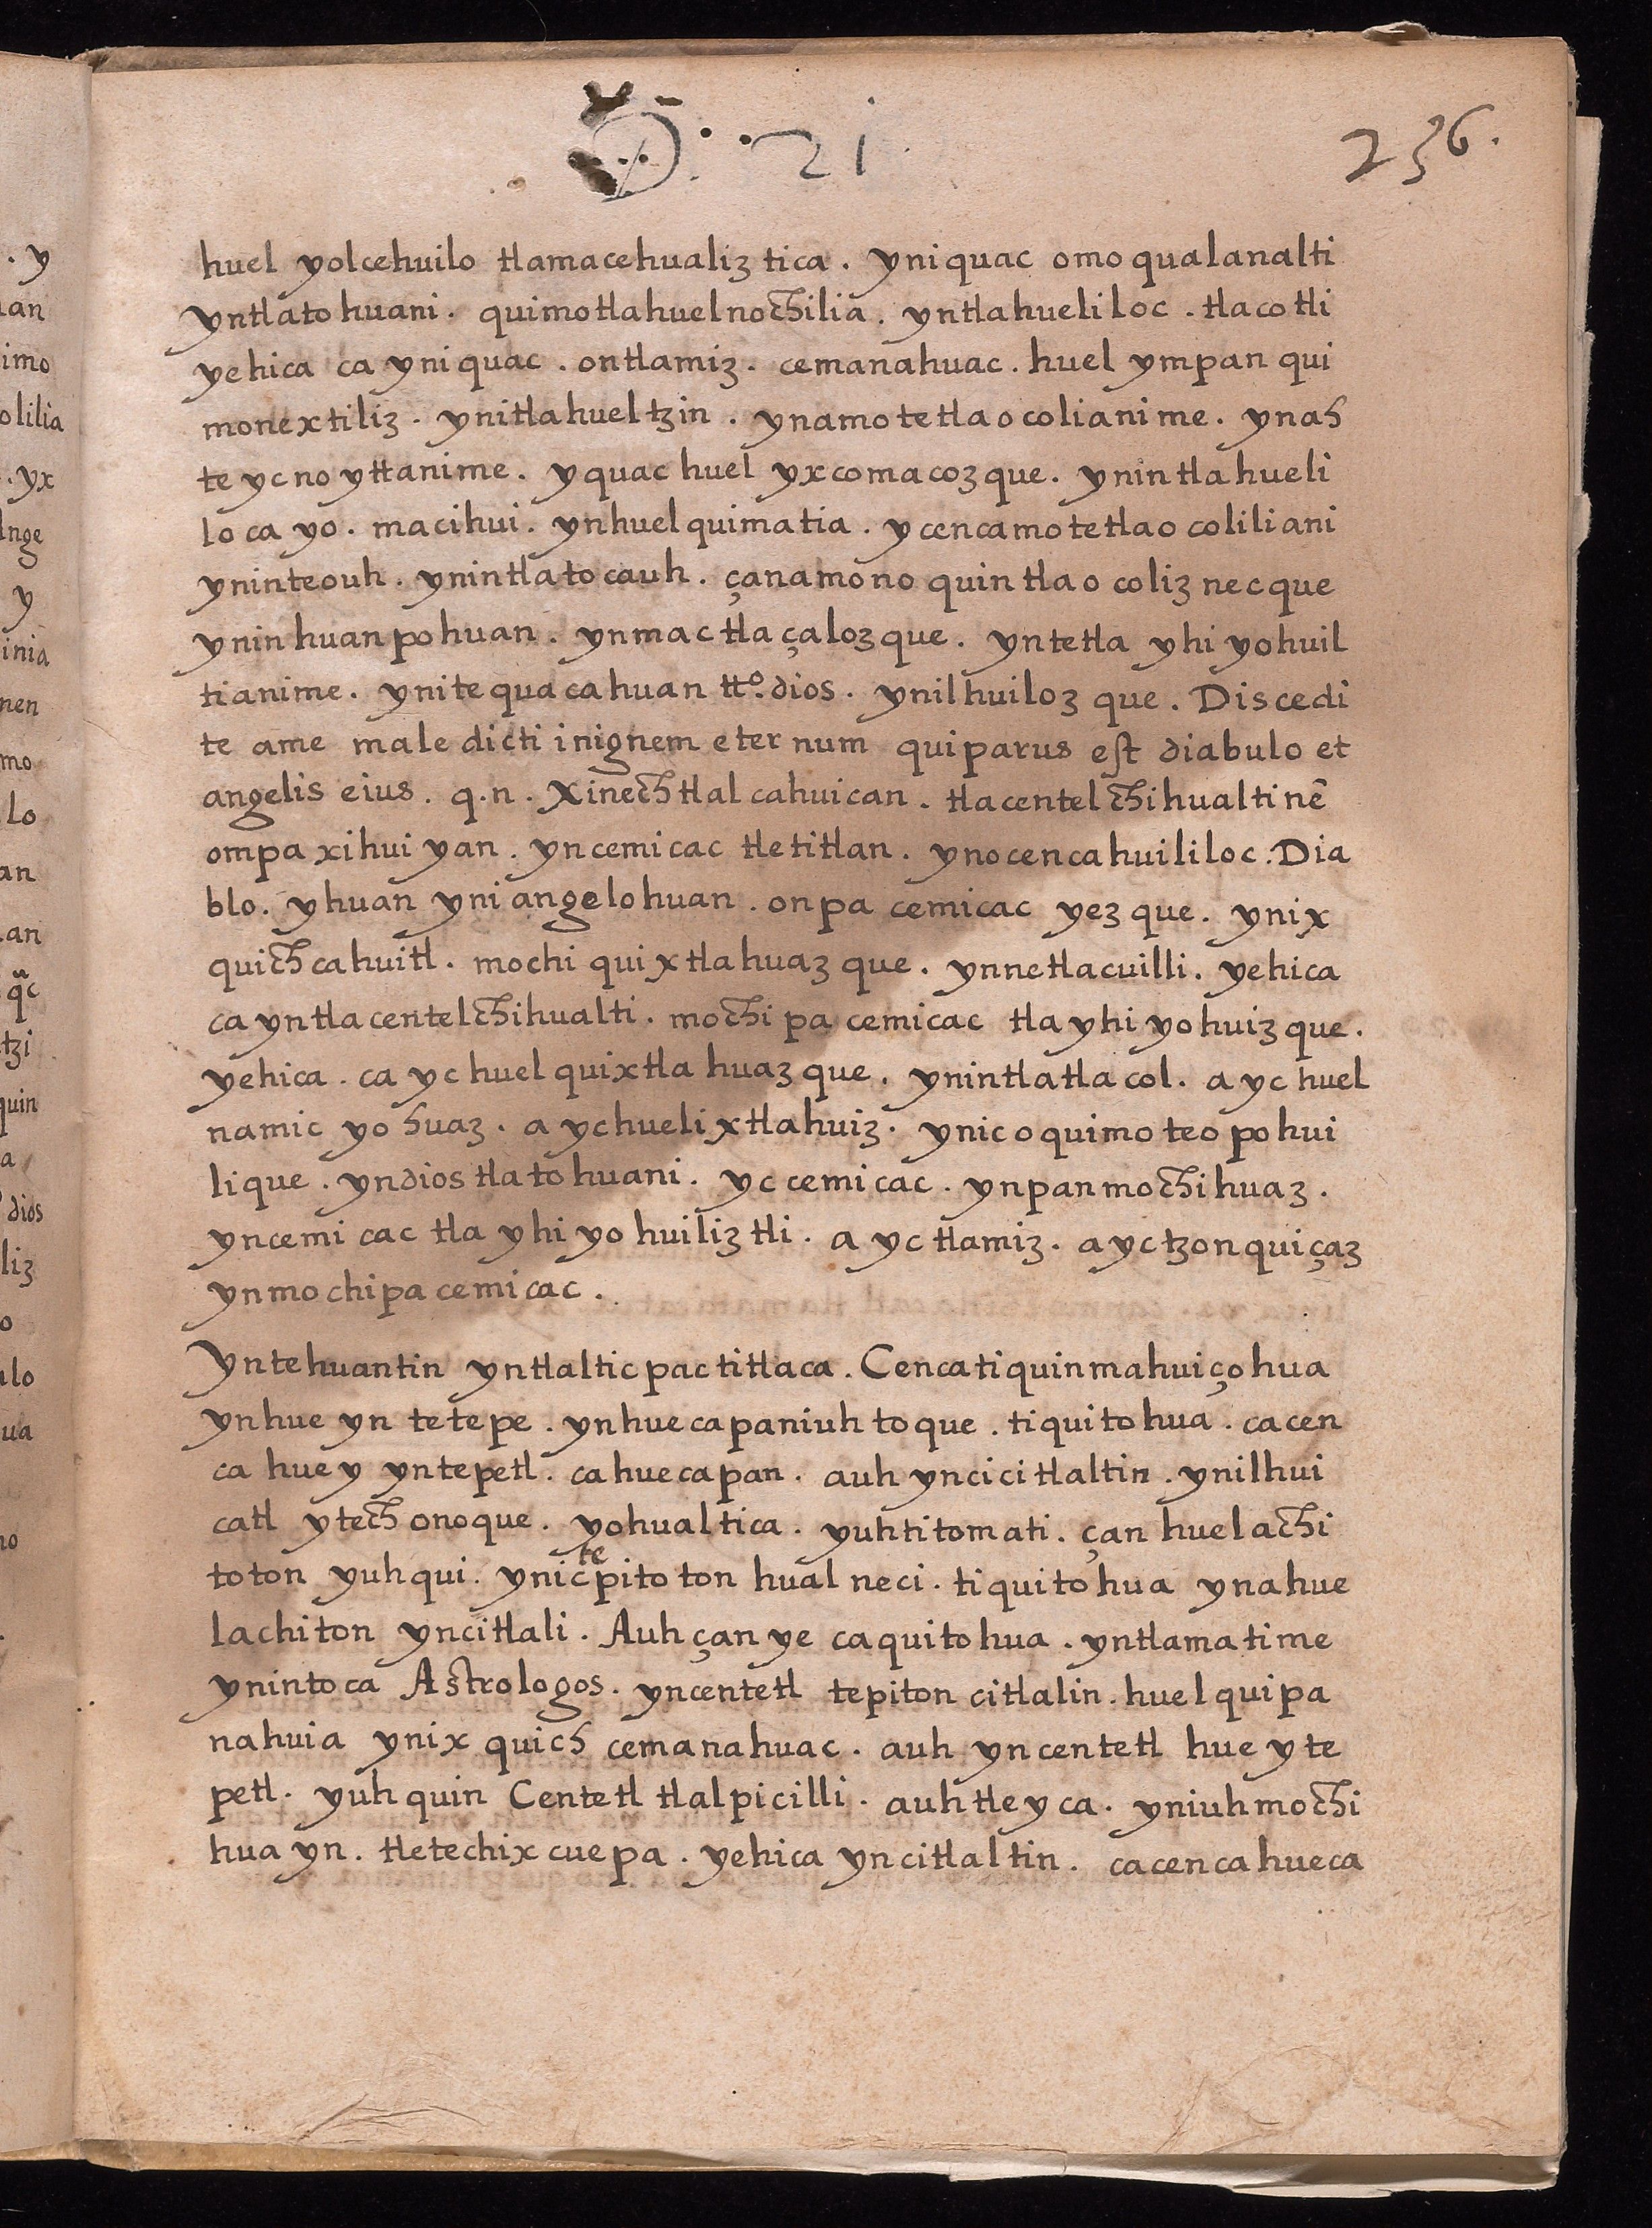 D. 21.
236.
huel yolcehuilo tlamacehualiz tica. yniquac omo qualanalti
yntlato huani. quimotlahuelnochilia. yntlahueliloc. tlacotli
yehica ca yniquac. ontlamiz. cemanahuac. huel ympan qui
monextiliz. ynitlahueltzin. ynamotetlaocolianime. ynah
te ycno yttanime. yquac huel yxcomacozque. ynintlahueli
loca yo. macihui. ynhuelquimatia. ycencamotetlao coliliani
yninteouh. ynintlatocauh. çanamono quintlao coliz necque
yninhuanpohuan. ynmac tlaçalozque. yntetla yhi yohuil
tianime. ynitequacahuan tto. dios. ynilhuiloz que. Discedi
te ame male dicti inignem eternum quiparus est diabulo et
angelis eius. q.n. Xinechtlalcahuican. tlacentelchihualtinē
ompa xihui yan. yncemicac tletitlan. ynocencahuililoc. Dia
blo. yhuan yni angelohuan. onpa cemicac yez que. ynix
quich cahuitl. mochi quixtlahuaz que. ynnetlacuilli. yehica
ca yntlacentelchihualti. mochi pa cemicac tla yhi yohuiz que.
yehica. ca yc huel quixtla huaz que. ynintlatlacol. a yc huel
namic yo huaz. a ychuelixtlahuiz. ynic oquimo teo pohui
lique. yndios tlatohuani. yc cemicac. ynpanmochihuaz.
yncemi cac tla yhi yo huiliztli. a yc tlamiz. a yctzonquiçaz
ynmochipa cemicac.
Yntehuantin yntlalticpactitlaca. Cencatiquinmahuiçohua
ynhue yn tetepe. ynhuecapaniuhtoque. tiquitohua. cacen
ca huey yntepetl. cahuecapan. auh yncicitlaltin. ynilhui
catl ytech onoque. yohualtica. yuhtitomati. çan huelachi
toton yuhqui. ynictepitoton hualneci. tiquitohua ynahue
lachiton yncitlali. Auh çan ye caquitohua. yntlamatime
ynintoca Astrologos. yncentetl tepiton citlalin. huelquipa
nahuia ynix quich cemanahuac. auh yncentetl hue y te
petl. yuhquin Centetl tlalpicilli. auhtleyca. yniuhmochi
hua yn. tletechixcuepa. yehica yncitlaltin. cacencahueca